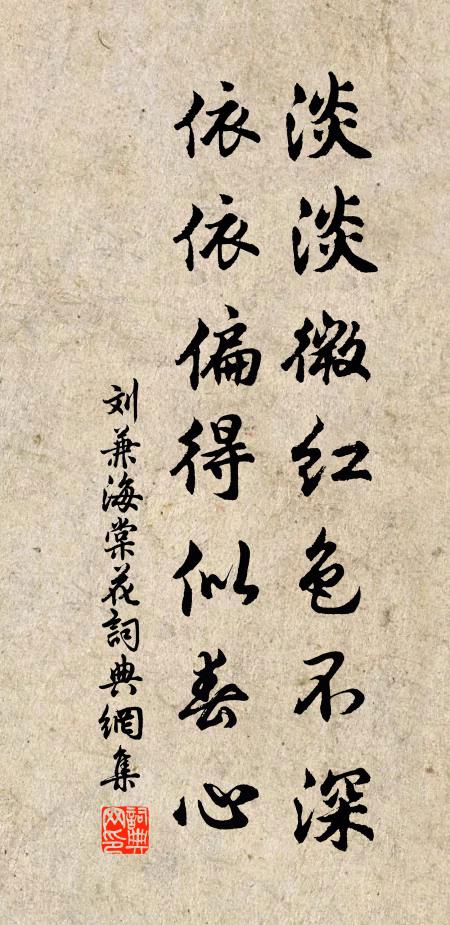 淡淡微红色不深
依依偏得似春心
刘兼海棠花詞典網集
詞典网印